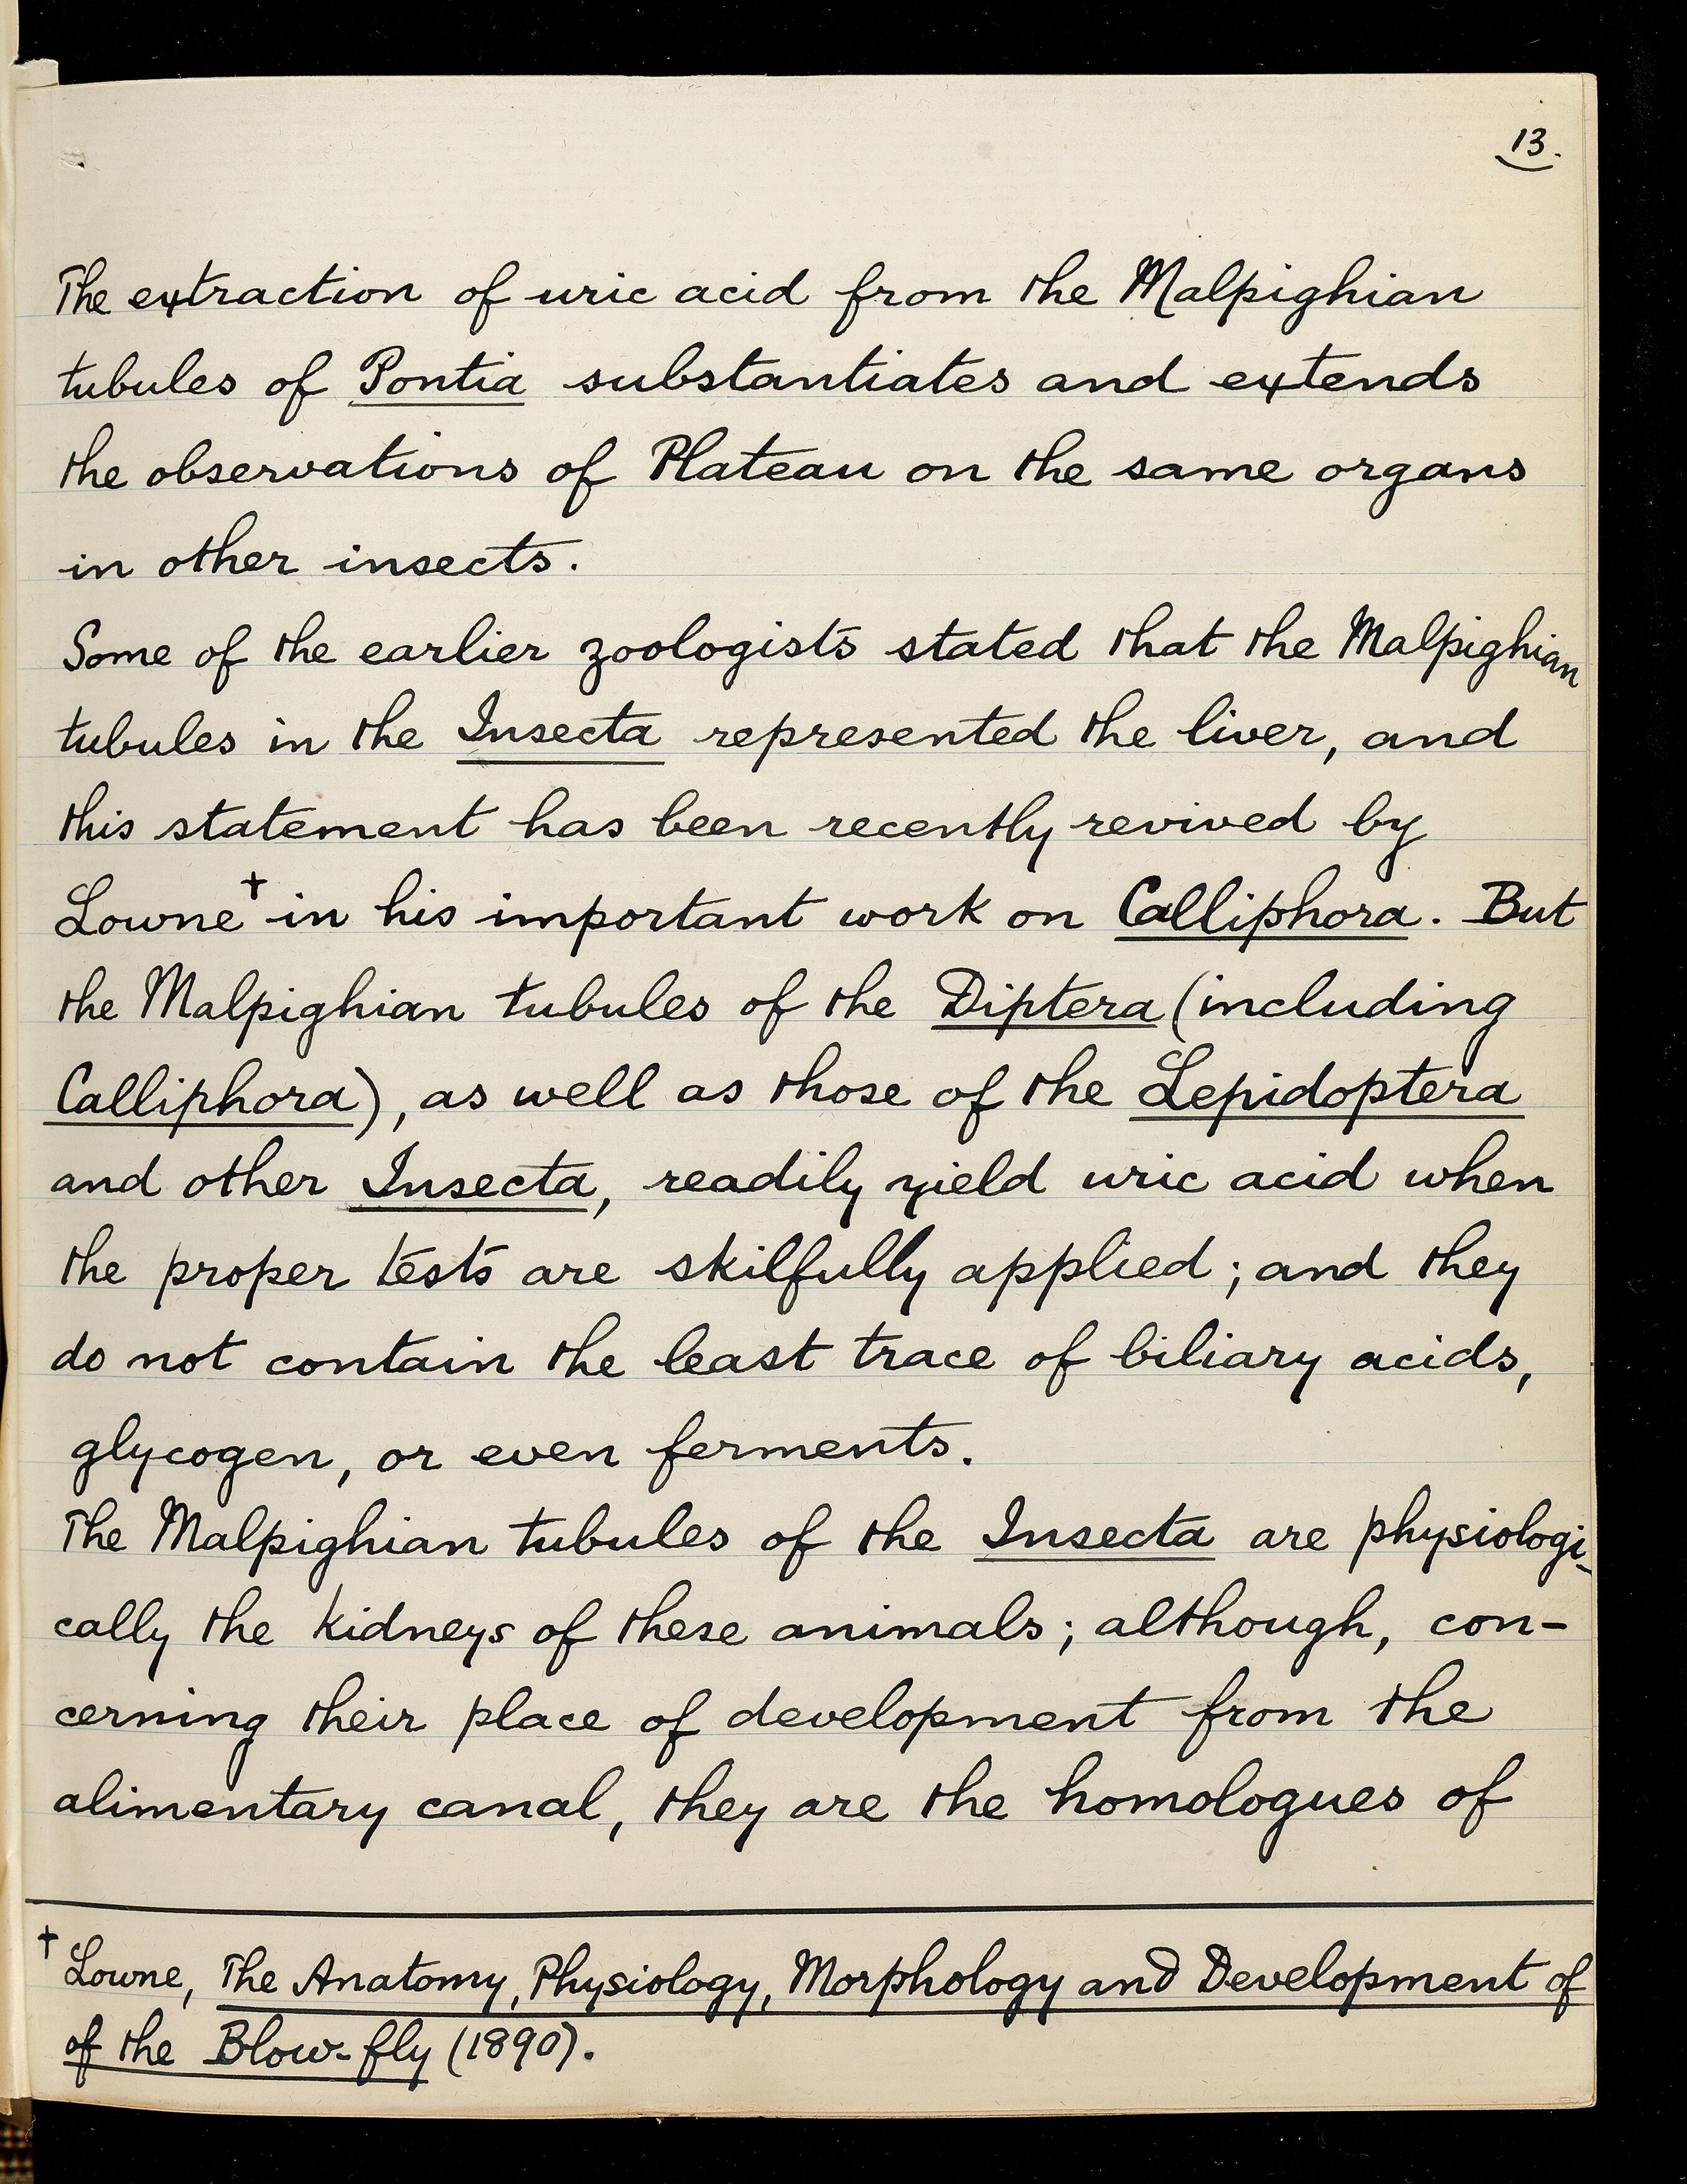 13.
The extraction of uric acid from the Malpighian
tubules of Pontia substantiates and extends
the observations of Plateau on the same organs
in other insects.
Some of the earlier zoologists stated that the Malpighian
tubules in the Insecta represented the liver, and
this statement has been recently revived by
Lowne† in his important work on Calliphora. But
the Malpighian tubules of the Diptera (including
Calliphora), as well as those of the Lepidoptera
and other Insecta, readily yield uric acid when
the proper tests are skilfully applied; and they
do not contain the least trace of biliary acids,
glycogen, or even ferments.
The Malpighian tubules of the Insecta are physiologi-
cally the kidneys of these animals; although, con-
cerning their place of development from the
alimentary canal, they are the homologues of
† Lowne, The Anatomy, Physiology, Morphology and Development of
of the Blow-fly (1890).